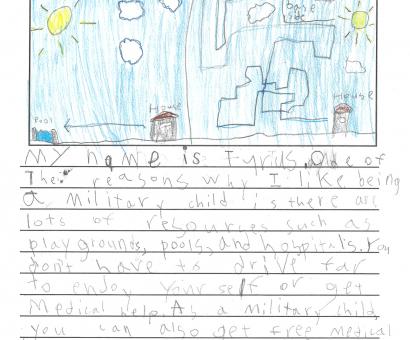 base
side
House
House
Pool
My name is Tyrils. One of
The reasons why I like being
a military child is there are
lots of resources such as
playgrounds, pools, and hospitals. You
don't have to drive far
to enjoy your self or get
Medical help. As a military child,
you can also get free medical